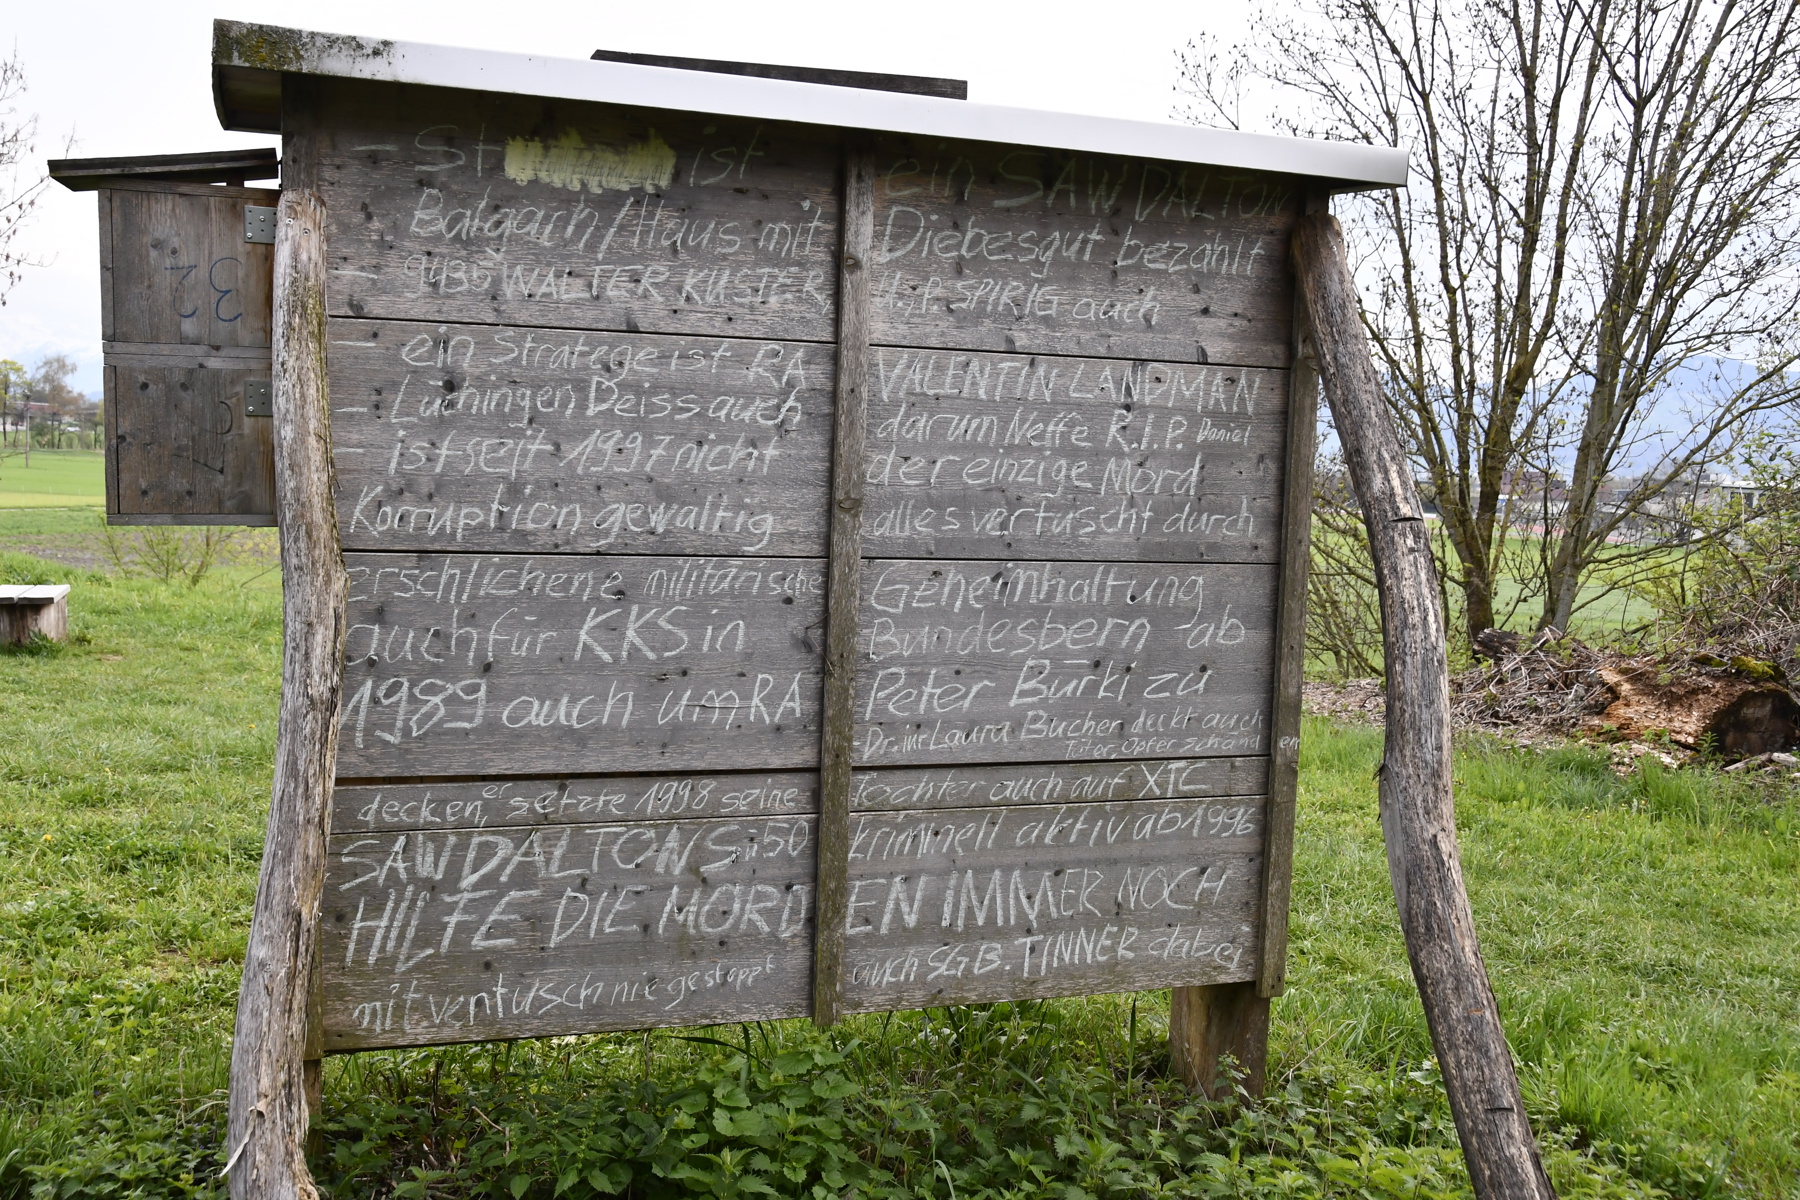 32
- St ist ein SAW DALTON
Balgach/Haus mit Diebesgut bezahlt
- 9435 WALTER KUSTER, H.P. SPIRIG auch
- ein Stratege ist RA VALENTIN LANDMAN
- Lüchingen Deiss auch darum Neffe R.I.P. Daniel
- ist seit 1997 nicht der einzige Mord
Korruption gewaltig alles vertuscht durch
erschlichene militärische Geheimhaltung
auch für KKS in Bundesbern ab
1989 auch um RA Peter Bürki zu
Dr. iur Laura Bucher deckt auch
Täter, Opfer schänden
decken, er setzte 1998 seine Tochter auch auf XTC
SAW DALTONS ü50 kriminell aktiv ab 1996
HILFE DIE MORDEN IMMER NOCH
mit ventusch nie gestoppt auch SGB. TINNER dabei